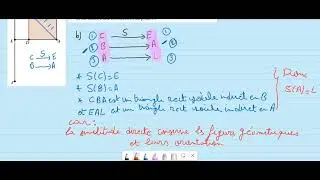 C S E
B → A
b) ① C S E ①
② B → A ②
③ A → L ③
* S(C)=E
* S(B)=A
* CBA est un triangle rect isocèle indirect en B
et EAL est un triangle rect isocèle indirect en A
Donc
S(A)=L
car:
la similitude directe conserve les figures géométriques
et leurs orientation